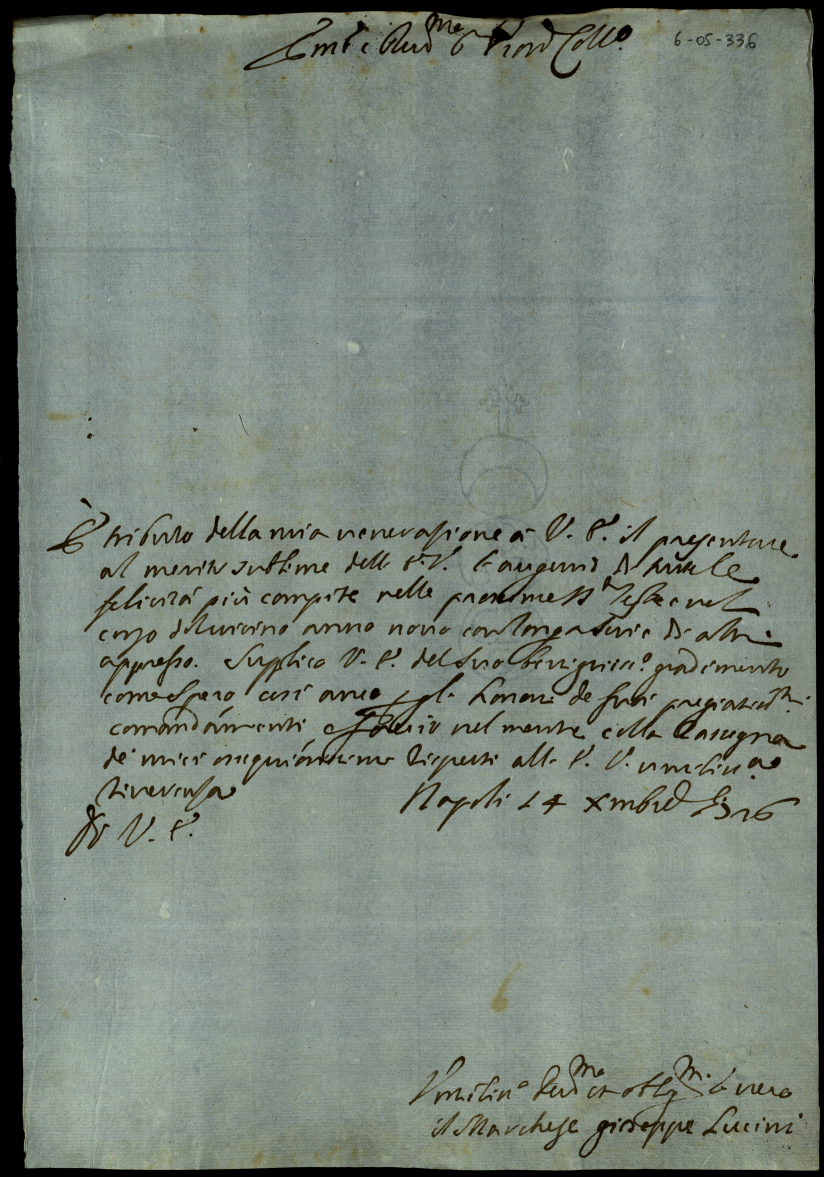 Em.e e Rev.me Sig.r Pron Coll.o 6-05-336
È tributo della mia venerazione à V. E. il presentare
al merito sublime dell' E. V. l'augurij di tutte le
felicità più compite nelle prossime SS.e feste e nel
corso del vicino anno novo con longa serie di altri
appresso. Supplico V. E. del suo benignis.o gradimento
come spero così anco gl' honore de suoi pregiatis.mi
comandamenti e nel mentre colla rasegna
de miei ossequiosissimi rispetti all' E. V. umilis.a
riverenza
Napoli 14 Xmbre
Di V. E.
Umilis.o Dev.mo et obblig.mo Servo
il Marchese Giuseppe Lucini